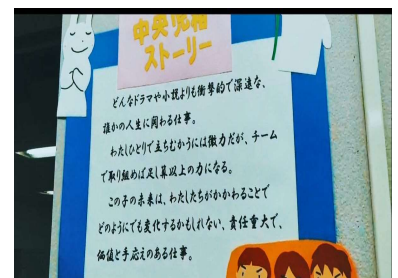 中央児相
ストーリー
どんなドラマや小説よりも衝撃的で深遠な、
誰かの人生に関わる仕事。
わたしひとりで立ちむかうには微力だが、チーム
で取り組めば足し算以上の力になる。
この子の未来は、わたしたちがかかわることで
どのようにでも変化するかもしれない、責任重大で、
価値と手応えのある仕事。